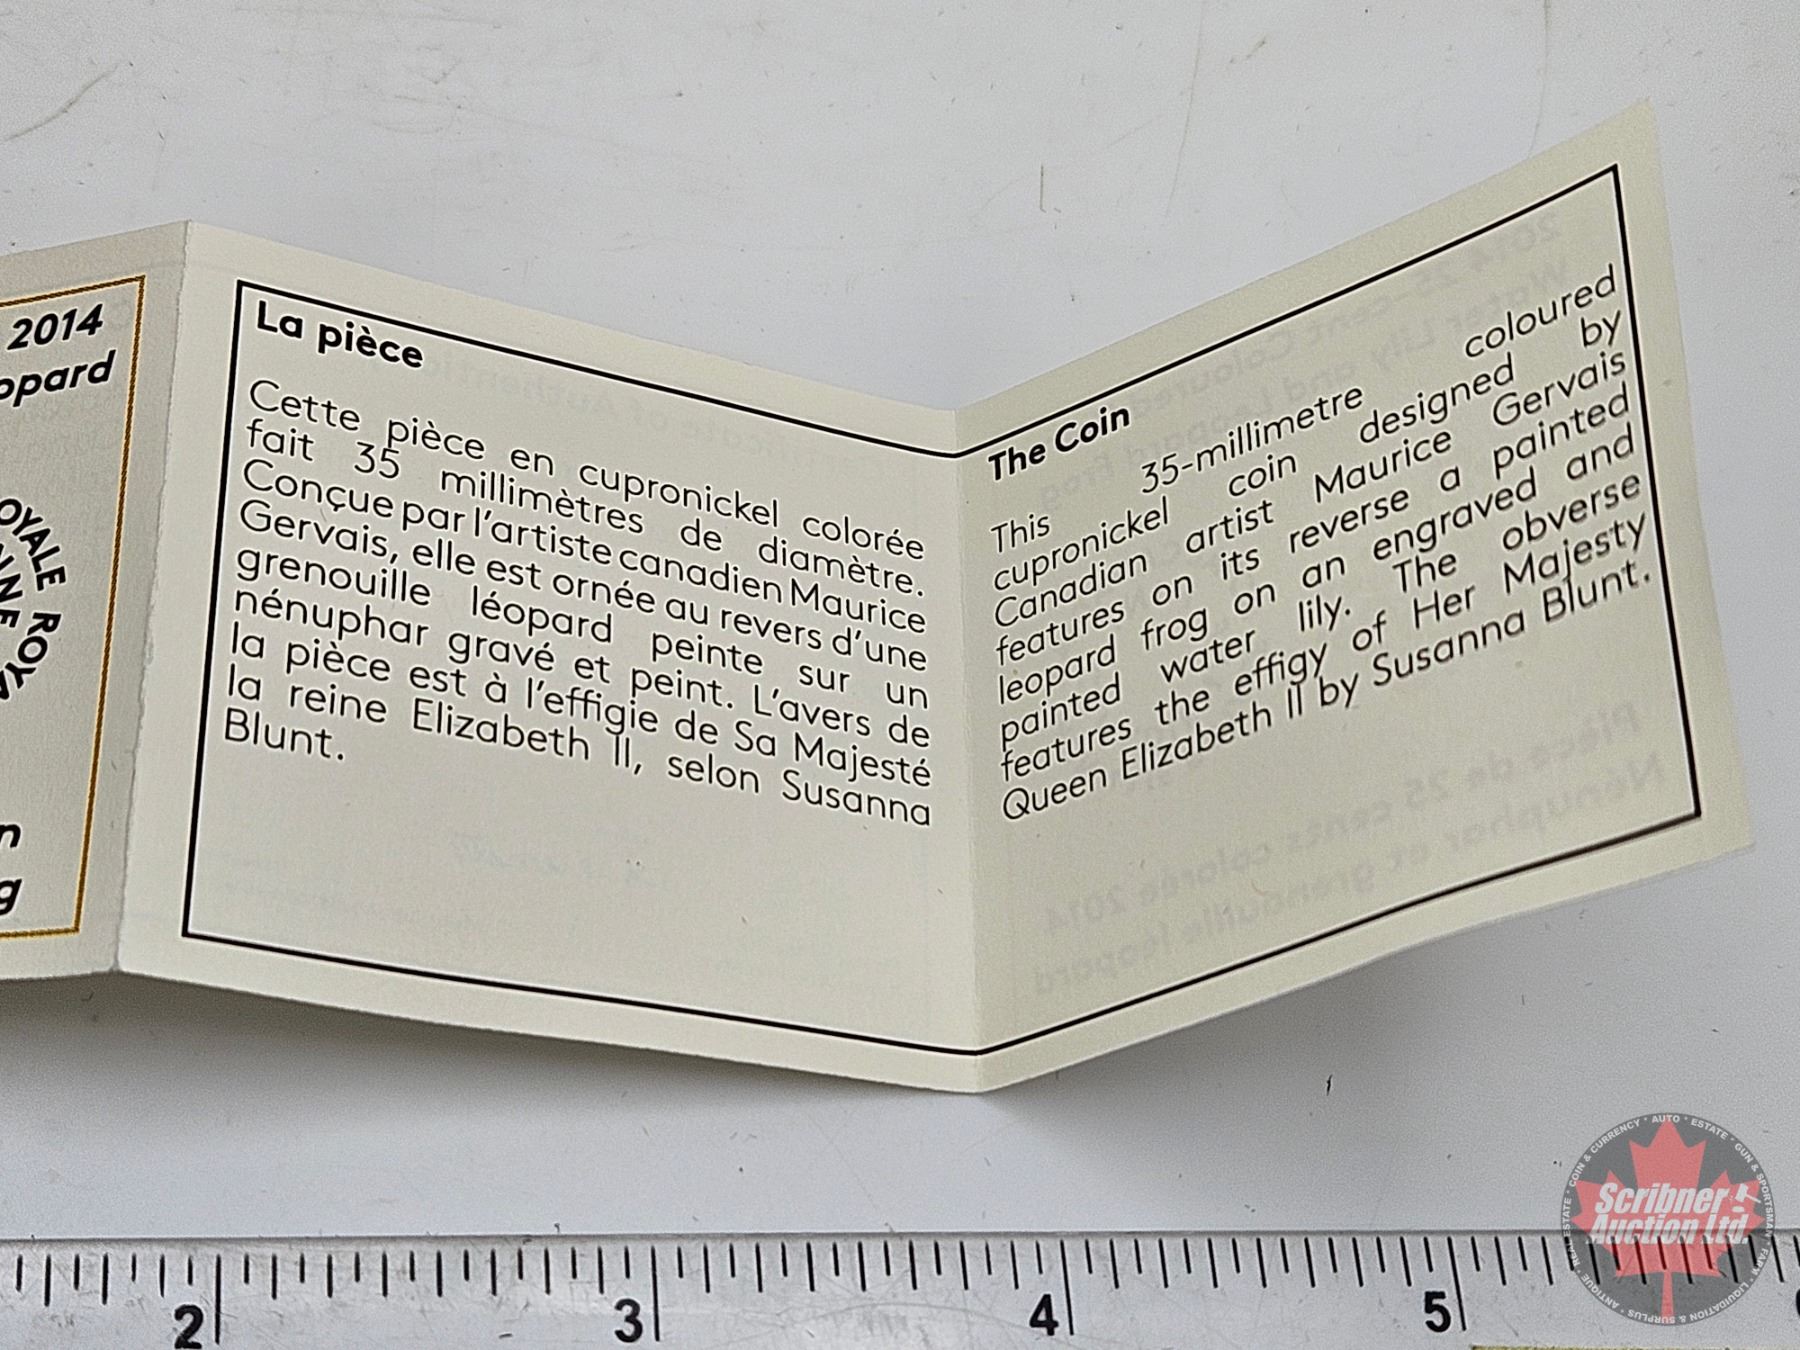 2014
opard
OYALE ROYA
AINE ROYA
n
g
La pièce
Cette pièce en cupronickel colorée
fait 35 millimètres de diamètre.
Conçue par l'artiste canadien Maurice
Gervais, elle est ornée au revers d'une
grenouille léopard peinte sur un
nénuphar gravé et peint. L'avers de
la pièce est à l'effigie de Sa Majesté
la reine Elizabeth II, selon Susanna
Blunt.
The Coin
This 35-millimetre coloured
cupronickel coin designed by
Canadian artist Maurice Gervais
features on its reverse a painted
leopard frog on an engraved and
painted water lily. The obverse
features the effigy of Her Majesty
Queen Elizabeth II by Susanna Blunt.
2 3 4 5
Scribner
Auction Ltd.
COIN & CURRENCY · AUTO · ESTATE · GUN & SPORTSMAN · FARM · LIQUIDATION & SURPLUS · ANTIQUE · REAL ESTATE ·